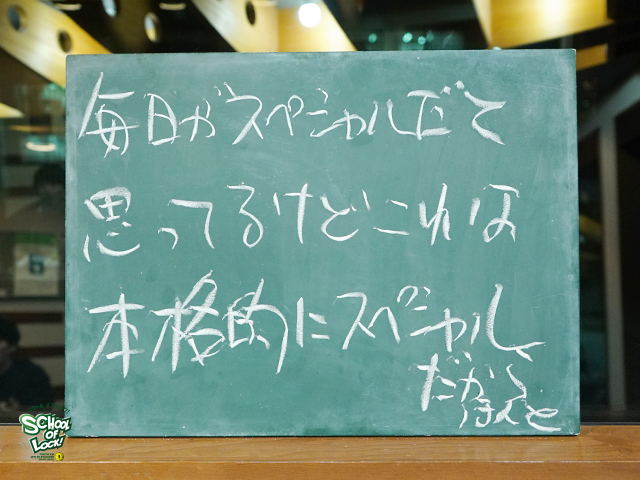 毎日がスペシャルだて
思ってるけどこれは
本格的にスペシャル
だから
ほんと
SCHOOL
OF
LOCK!